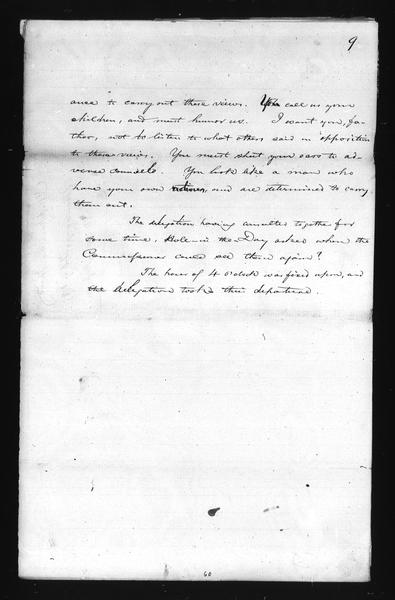 9
ance to carry out these views. You call us your
children, and must humor us. I want you, fa-
ther, not to listen to what others said in opposition
to these views. You must shut your ears to ad-
verse counsels. You look like a man who
have your own notions, and are determined to carry
them out.
The delegation having consulted together for
some time, Hole in the Day asked when the
Commissioner could see them again?
The hour of 4 o'clock was fixed upon, and
the delegation took their departure.
60